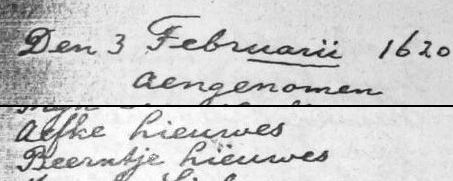 Den 3 Februarii 1620
aengenomen
Aefke Lieuwes
Beerntje Liëuwes